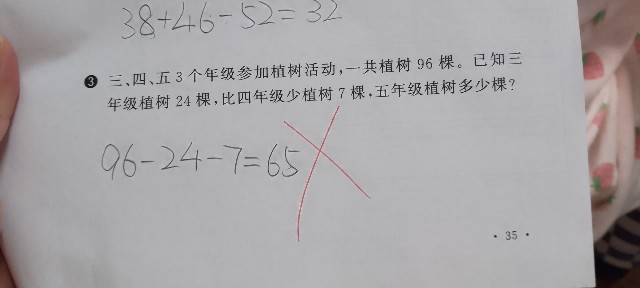 38+46-52=32
❸ 三、四、五3个年级参加植树活动,一共植树96棵。已知三
年级植树24棵,比四年级少植树7棵,五年级植树多少棵?
96-24-7=65
·35·